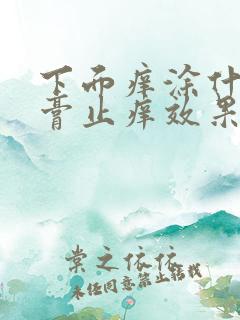 下面痒涂什
膏止痒效果
棠之依依
未经同意禁止转载